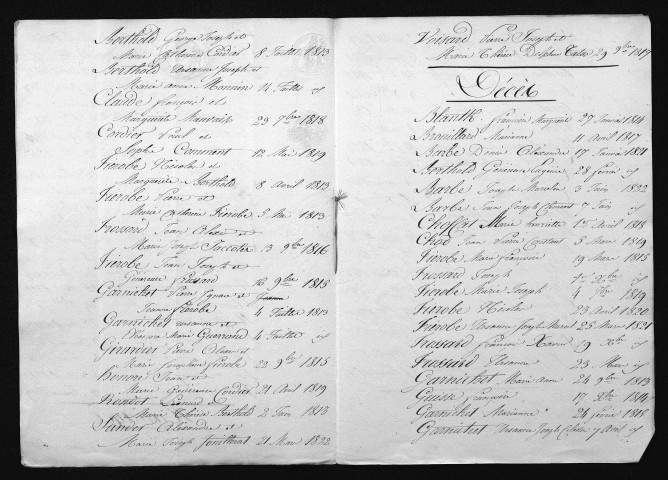 Berthold George Joseph et
Marie Catherine Cordier 8 Juillet 1813
Berthold Ursanne Joseph et
Marie Anne Monnin 14 Juillet id
Claude françois et
Marguerite Mauvais 29 7bre 1818
Cordier Paul et
Sophie Comment 12 Mai 1819
Fierobe Nicolas et
Marguerite Berthold 8 Avril 1813
Fierobe Pierre et
Marie Catherine Fierobe 5 1813
Frossard Jean et
Marie Joseph 13 9bre 1816
Fierobe Jean Joseph et
Génévieve Frossard 13 9bre 1815
Garnichet Pierre Ignace et
Jeanne Fierobe 4 Juillet 1813
Garnichet ursanne et
Marie Guerrard 4 Juillet id
Girardin Pierre et
Marie Josephine Fierobe 22 9bre 1815
Henon Jean et
Marie Généreuse Cordier 21 Avril 1819
Léonard et
Marie Thérèse Berthold 2 Juin 1813
Sander Alexandre et
Marie Joseph 21 Mars 1822
Voisard Pierre Joseph et
Marie Thérèse Delphine 29 9bre 1817
Décès
Blanth françois Marguerite 27 Janvier 1814
Brouillard Marianne 11 Avril 1817
Barbe Denis Alexandre 17 Janvier 1821
Berthold Génévieve Eugénie 28 fevrier id
Barbé Joseph 3 Juin 1822
Barbe Jean Joseph Clément 7 Juin id
Choffat Marie henriette 1er Avril 1818
Choé Jean Pierre Constant 5 Mars 1819
Fierobe Marie françoise 19 Mars 1815
Frossard Joseph id
Fierobe Marie Joseph 4 7bre 1819
Fierobe Nicolas 25 Avril 1820
Fierobe Ursanne Joseph Marcel 25 Mars 1821
Frossard francois Xavier 19 Xbre id
Frossard Ursanne 23 Mars id
Garnichet Marie Anne 24 9bre 1813
françoise 17 Xbre 1814
Garnichet Marianne 24 fevrier 1815
Garnichet Ursanne Joseph 7 Avril id